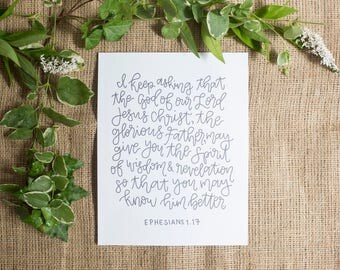 I keep asking that
the God of our Lord
Jesus Christ, the
glorious Father, may
give you the Spirit
of wisdom & revelation
so that you may
know him better
EPHESIANS 1:17